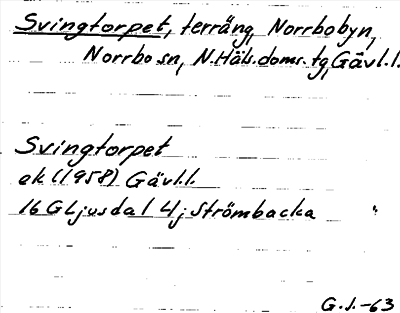 Svingtorpet, terräng, Norrbobyn,
Norrbo sn, N.Häls.doms.tg, Gävl.l.
Svingtorpet
ek (1958) Gävl.l.
16 G Ljusdal 4j Strömbacka "
G.J.-63